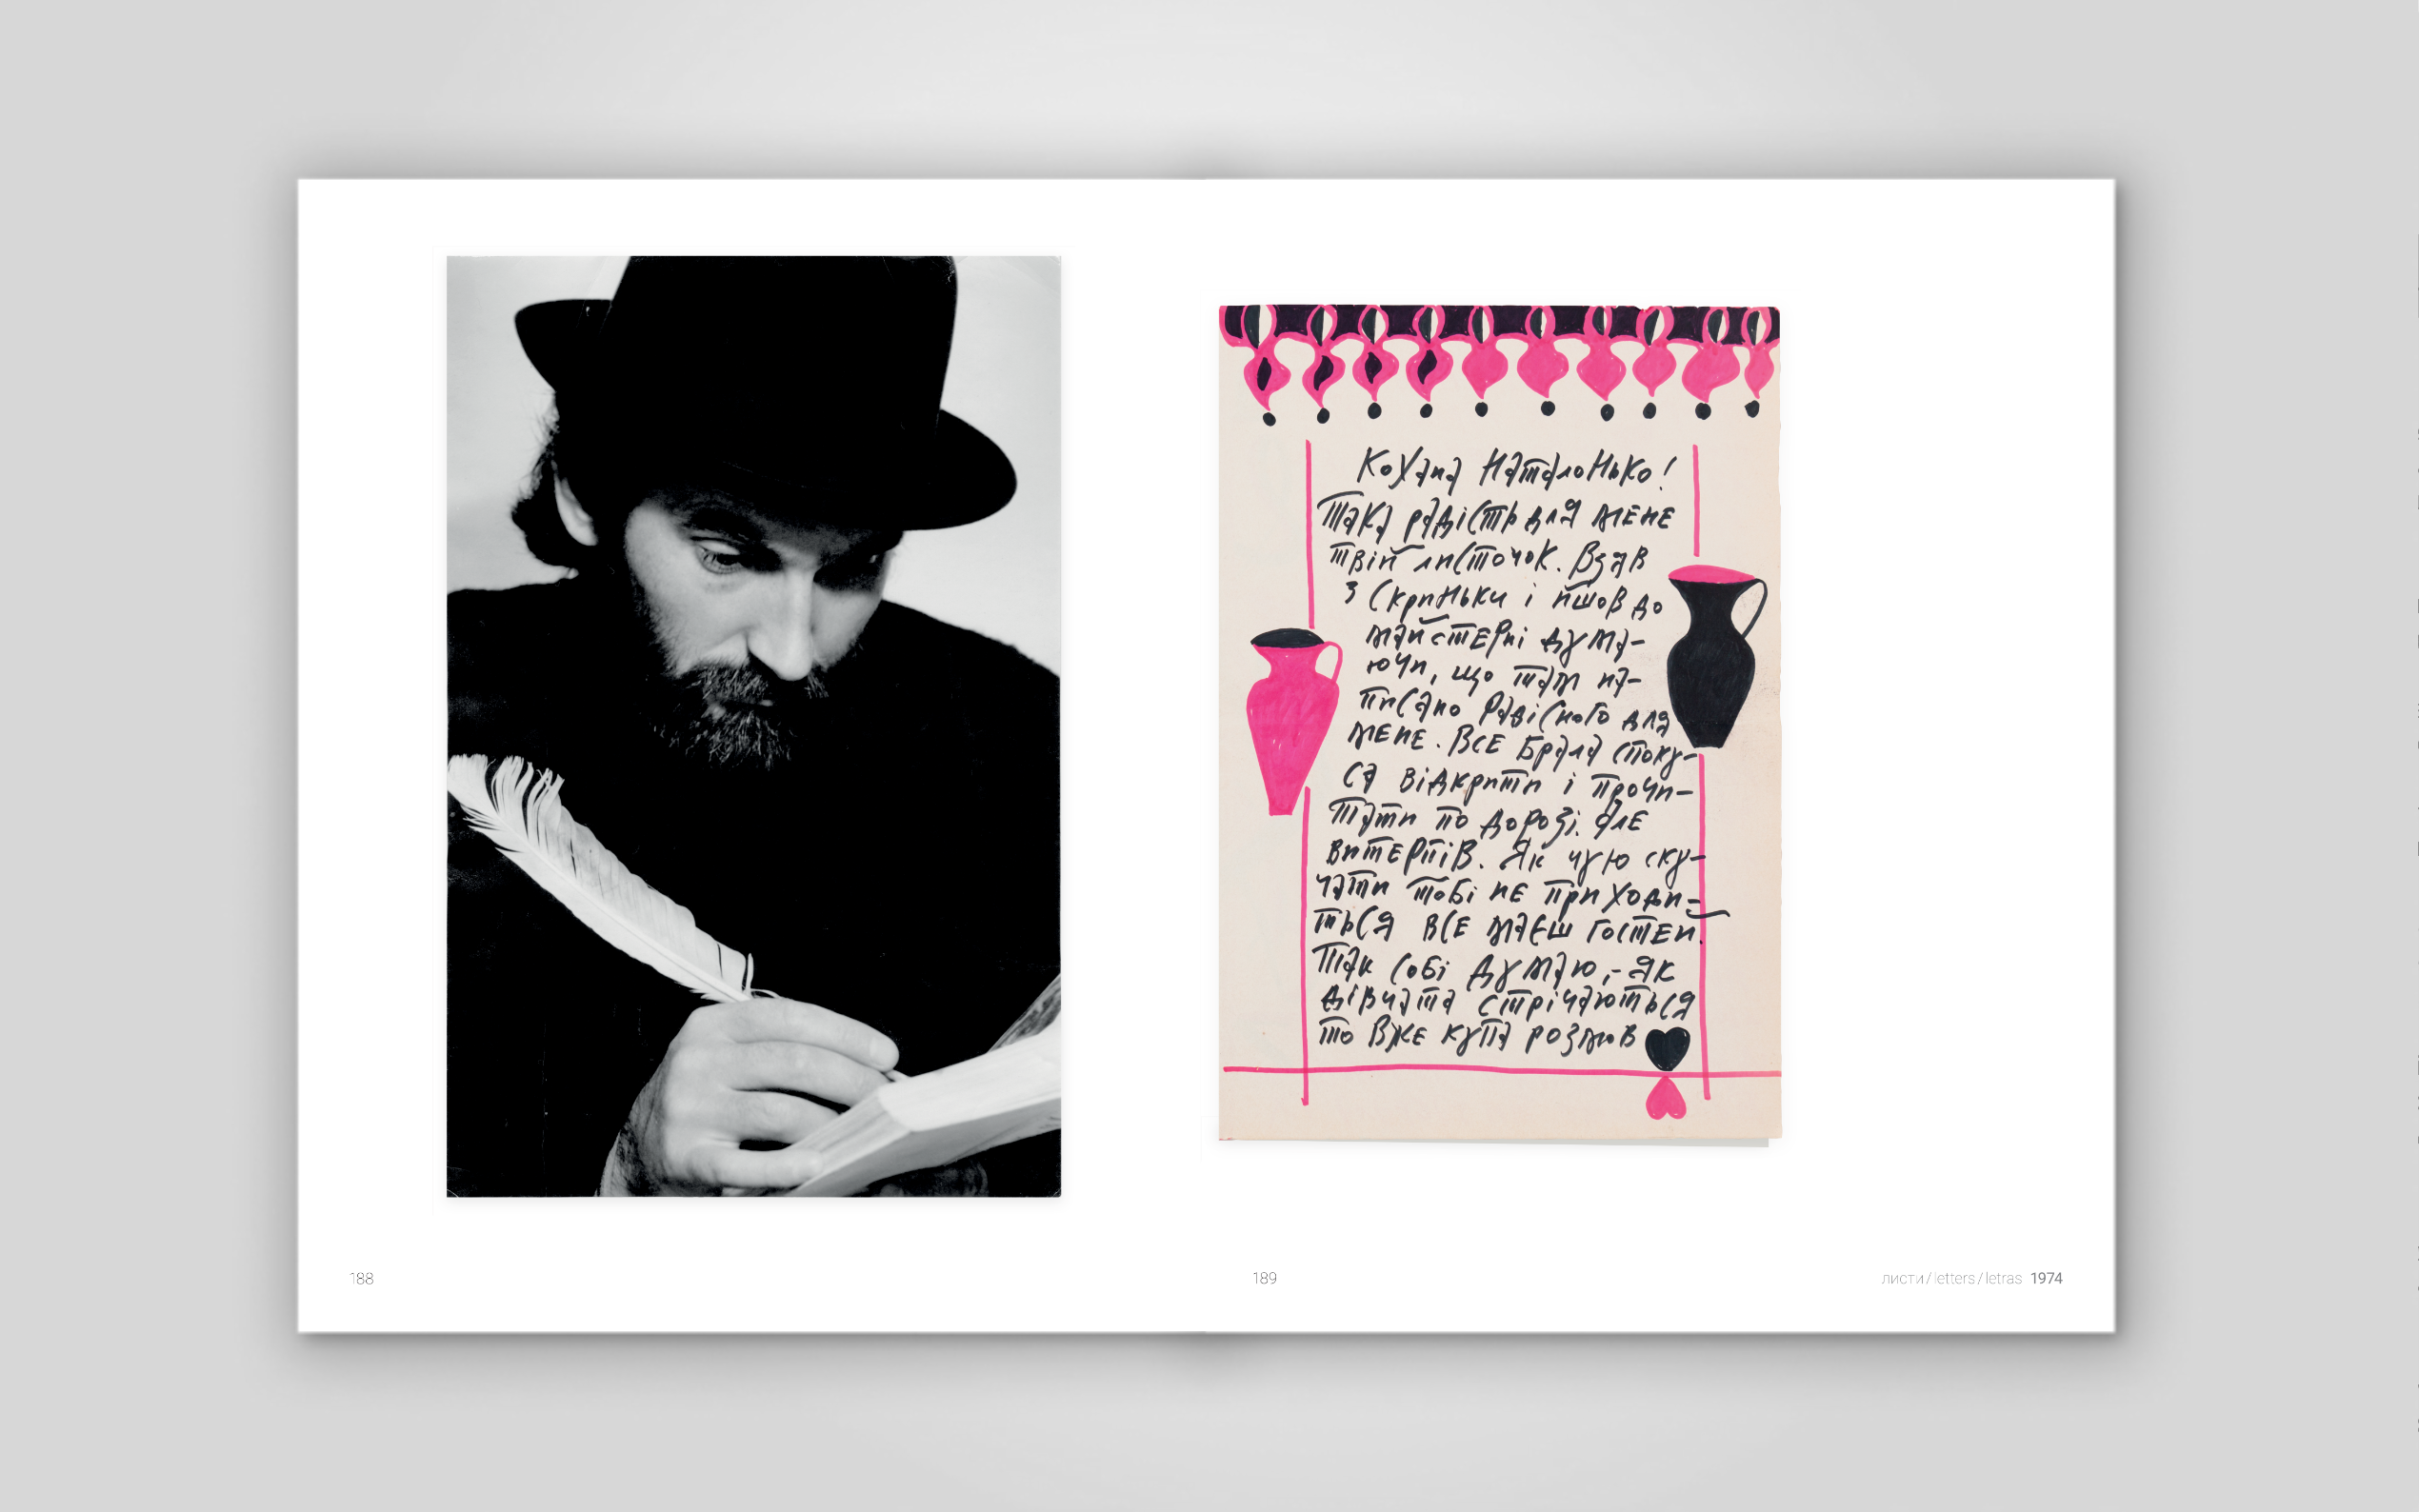 Кохана Наталонько!
Така радість для мене
твій листочок. Взяв
з скриньки і йшов до
майстерні дума-
ючи, що там на-
писано радісного для
мене. Все брала споку-
са відкрити і прочи-
тати по дорозі. Але
витерпів. Як чую ску-
чати тобі не приходи-
ться все маєш гостей.
Так собі думаю,- як
дівчата стрічаються
то вже купа розмов
188
189
листи / letters / letras 1974